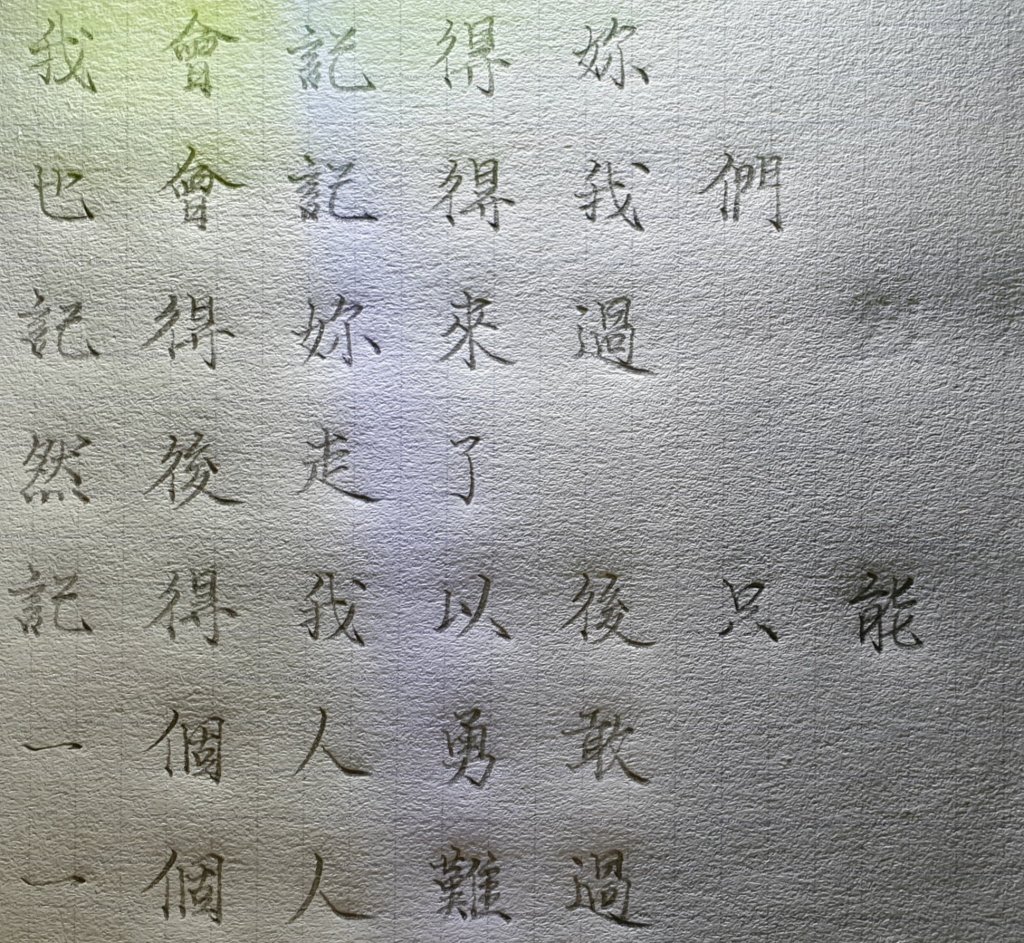 我會記得妳
也會記得我們
記得妳來過
然後走了
記得我以後只能
一個人勇敢
一個人難過